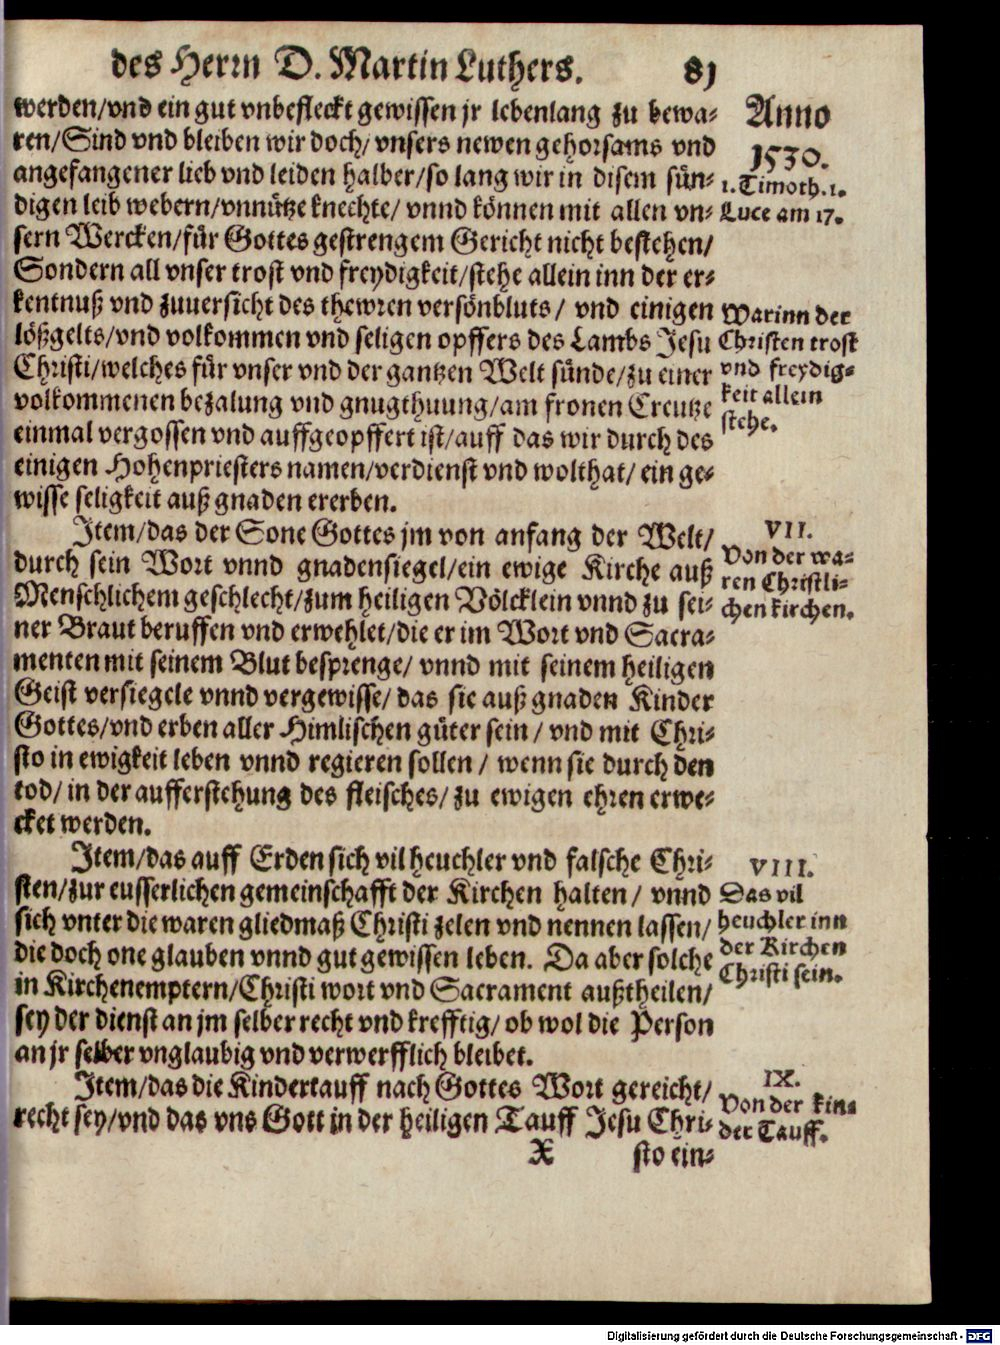 des Herrn D. Martin Luthers. 81
werden/vnd ein gut vnbefleckt gewissen jr lebenlang zu bewa-
ren/Sind vnd bleiben wir doch/ vnsers newen gehorsams vnd
angefangener lieb vnd leiden halber/so lang wir in disem sün-
digen leib webern/vnnütze knechte/ vnnd können mit allen vn-
sern Wercken/für Gottes gestrengem Gericht nicht bestehen/
Sondern all vnser trost vnd freydigkeit/stehe allein inn der er-
kentnuß vnd zuuersicht des thewren versönbluts/ vnd einigen
lößgelts/vnd volkommen vnd seligen opffers des Lambs Jesu
Christi/welches für vnser vnd der gantzen Welt sünde/zu einer
volkommenen bezalung vnd gnugthuung/am fronen Creutze
einmal vergossen vnd auffgeopffert ist/auff das wir durch des
einigen Hohenpriesters namen/verdienst vnd wolthat/ ein ge-
wisse seligkeit auß gnaden ererben.
Item/das der Sone Gottes jm von anfang der Welt/
durch sein Wort vnnd gnadensiegel/ein ewige Kirche auß
Menschlichem geschlecht/zum heiligen Völcklein vnnd zu sei-
ner Braut beruffen vnd erwehlet/die er im Wort vnd Sacra-
menten mit seinem Blut besprenge/ vnnd mit seinem heiligen
Geist versiegele vnnd vergewisse/ das sie auß gnaden Kinder
Gottes/vnd erben aller Himlischen güter sein / vnd mit Chri-
sto in ewigkeit leben vnnd regieren sollen / wenn sie durch den
tod/ in der aufferstehung des fleisches/ zu ewigen ehren erwe-
cket werden.
Item/das auff Erden sich vil heuchler vnd falsche Chri-
sten/zur eusserlichen gemeinschafft der Kirchen halten/ vnnd
sich vnter die waren gliedmaß Christi zelen vnd nennen lassen/
die doch one glauben vnnd gut gewissen leben. Da aber solche
in Kirchenemptern/Christi wort vnd Sacrament außtheilen/
sey der dienst an jm selber recht vnd krefftig/ ob wol die Person
an jr selber vnglaubig vnd verwerfflich bleibet.
Item/das die Kindertauff nach Gottes Wort gereicht/
recht sey/vnd das vns Gott in der heiligen Tauff Jesu Chri-
X sto ein-
Anno
1530.
1. Timoth. 1.
Luce am 17.
Warinn der
Christen trost
vnd freydig-
keit allein
stehe.
VII.
Von der wa-
ren Christli-
chen kirchen.
VIII.
Das vil
heuchler inn
der Kirchen
Christi sein.
IX.
Von der kin-
der Tauff.
Digitalisierung gefördert durch die Deutsche Forschungsgemeinschaft - DFG